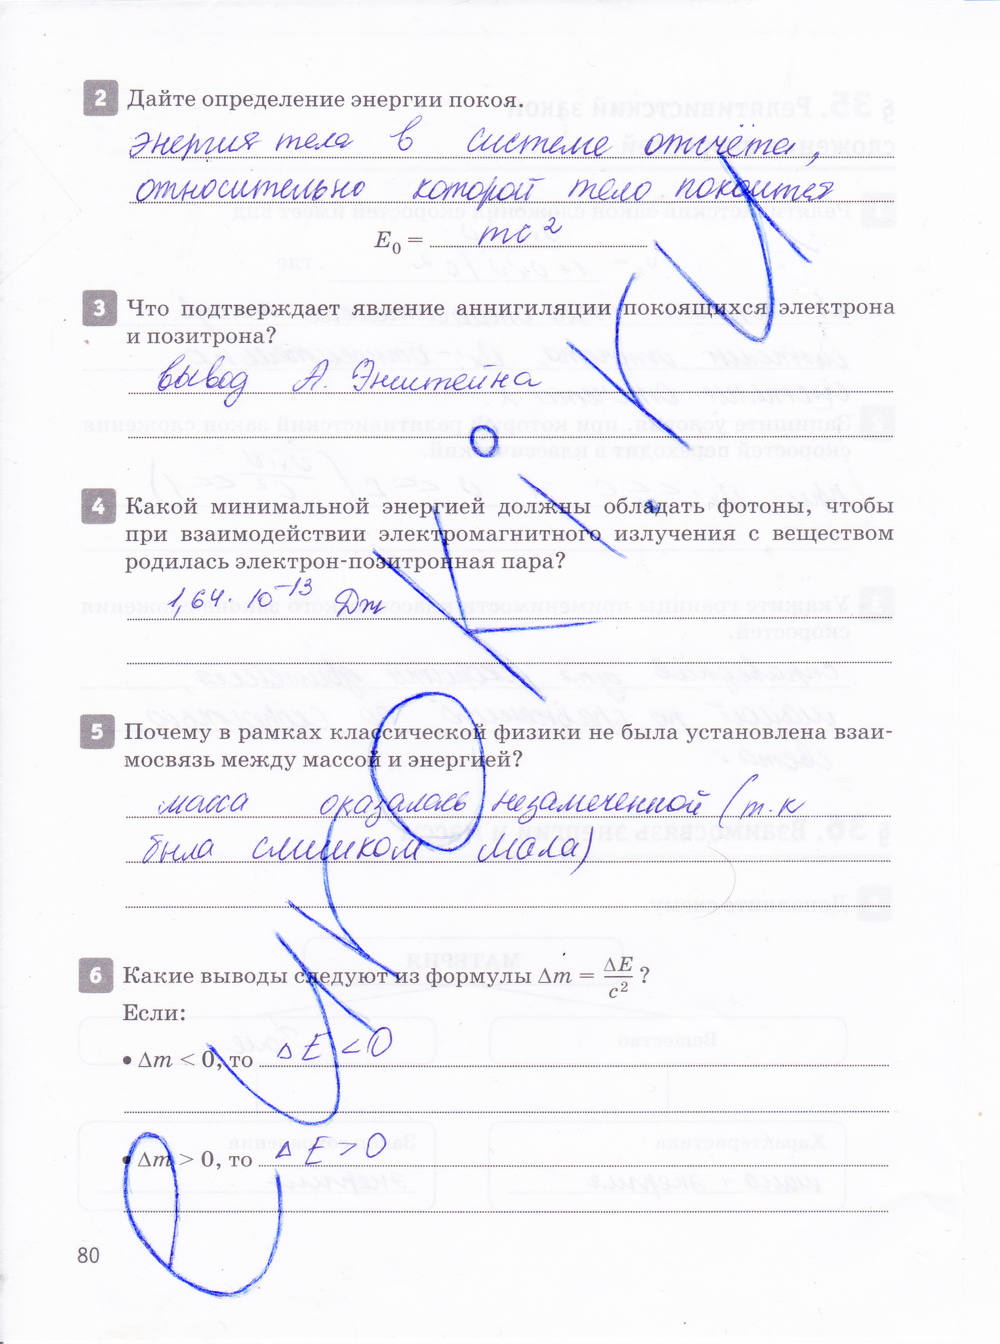 2 Дайте определение энергии покоя.
энергия тела в системе отсчёта,
относительно которой тело покоится
E₀ = mc²
3 Что подтверждает явление аннигиляции покоящихся электрона
и позитрона?
вывод А. Энштейна
4 Какой минимальной энергией должны обладать фотоны, чтобы
при взаимодействии электромагнитного излучения с веществом
родилась электрон-позитронная пара?
1,64 · 10⁻¹³ Дж
5 Почему в рамках классической физики не была установлена взаи-
мосвязь между массой и энергией?
масса оказалась незамеченной (т.к
была слишком мала)
6 Какие выводы следуют из формулы Δm = ΔE/c² ?
Если:
• Δm < 0, то ΔE < 0
• Δm > 0, то ΔE > 0
80